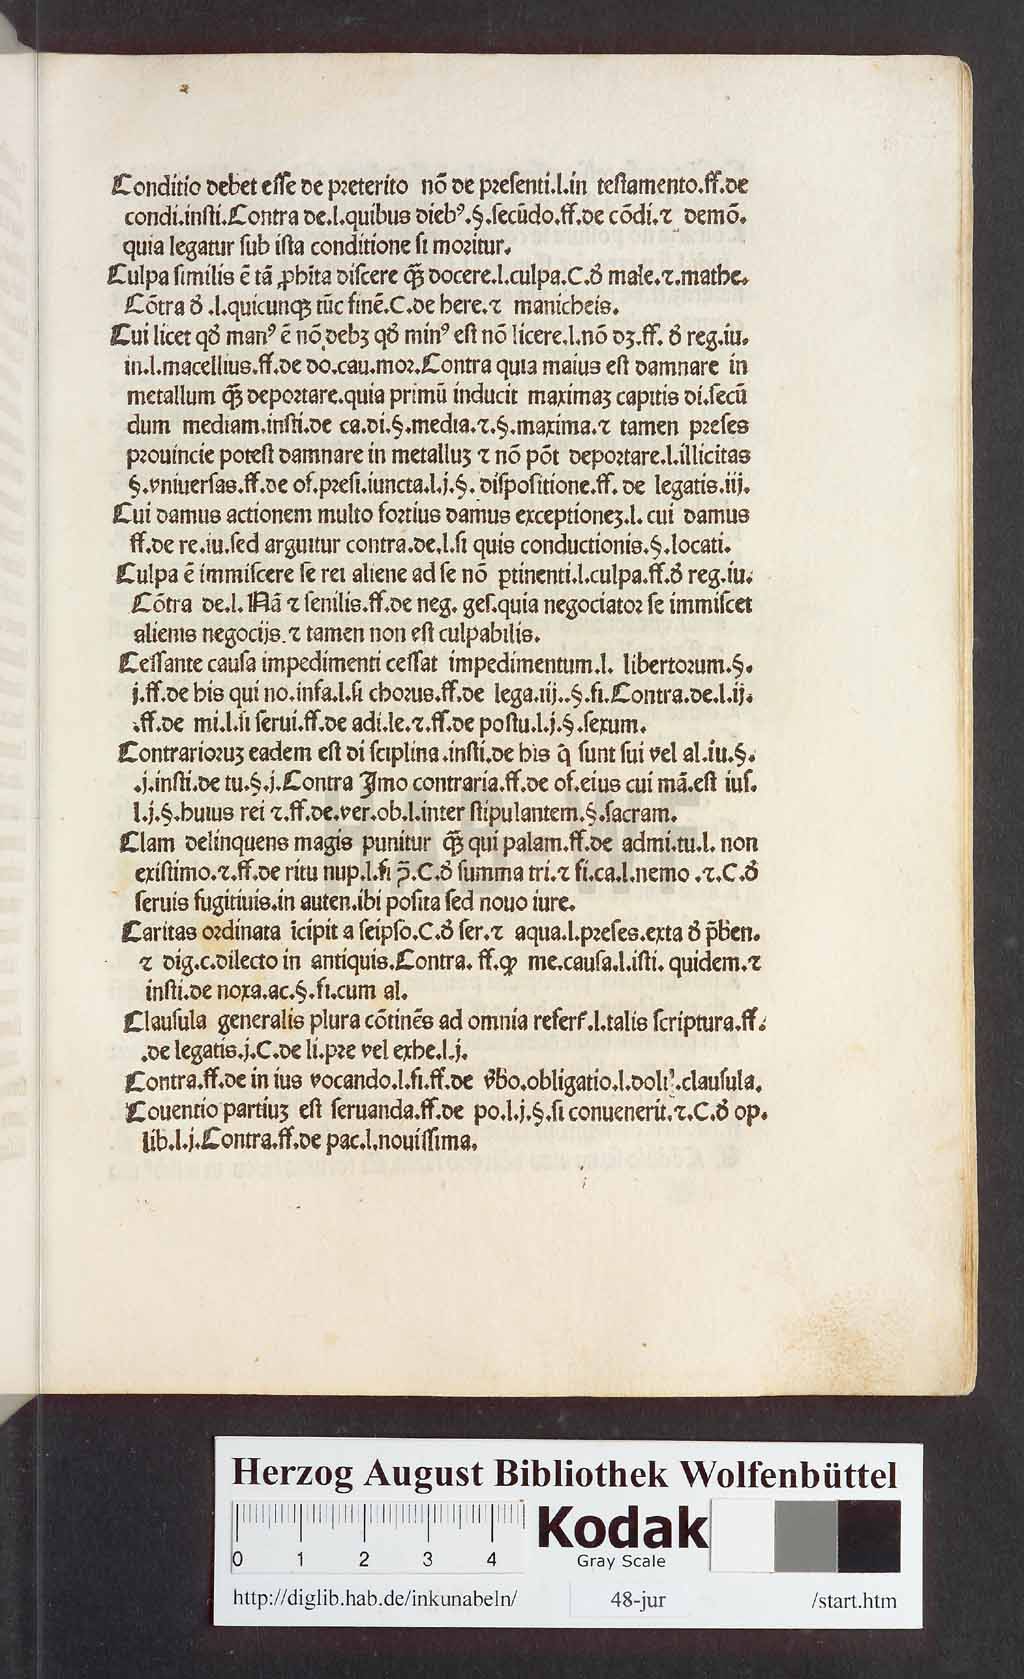 Conditio debet esse de preterito nõ de presenti.l.in testamento.ff.de
condi.insti.Contra de.l.quibus diebꝰ.§.secũdo.ff.de cõdi.⁊ demõ.
quia legatur sub ista conditione si moritur.
Culpa similis ẽ tã ꝓhĩta discere qꝫ̃ docere.l.culpa.C.ð male.⁊.mathe.
Cõtra ð .l.quicunqꝫ tũc finẽ.C.de here.⁊ manicheis.
Cui licet qð maꝰ ẽ nõ debꝫ qð minꝰ est nõ licere.l.nõ dꝫ.ff. ð reg.iu.
in.l.macellius.ff.de do.cau.mor.Contra quia maius est damnare in
metallum qꝫ̃ deportare.quia primũ inducit maximaꝫ capitis di.secũ
dum mediam.insti.de ca.di.§.media.⁊.§.maxima.⁊ tamen preses
prouincie potest damnare in metalluꝫ ⁊ nõ põt deportare.l.illicitas
§.vniuersas.ff.de of.presi.iuncta.l.j.§. dispositione.ff. de legatis.iij.
Cui damus actionem multo fortius damus exceptioneꝫ.l. cui damus
ff.de re.iu.sed arguitur contra.de.l.si quis conductionis.§.locati.
Culpa ẽ immiscere se rei aliene ad se nõ ꝑtinenti.l.culpa.ff.ð reg.iu.
Cõtra de.l. Nã ⁊ senilis.ff.de neg. ges.quia negociator se immiscet
alienis negocijs.⁊ tamen non est culpabilis.
Cessante causa impedimenti cessat impedimentum.l. libertorum.§.
j.ff.de his qui no.infa.l.si chorus.ff.de lega.iij..§.fi.Contra.de.l.ij.
.ff.de mi.l.si serui.ff.de adi.le.⁊.ff.de postu.l.j.§.sexum.
Contrarioruꝫ eadem est di sciplina.insti.de his q̃ sunt sui vel al.iu.§.
.j.insti.de tu.§.j.Contra Jmo contraria.ff.de of.eius cui mã.est ius.
l.j.§.huius rei ⁊.ff.de.ver.ob.l.inter stipulantem.§.sacram.
Clam delinquens magis punitur qꝫ̃ qui palam.ff.de admi.tu.l. non
existimo.⁊.ff.de ritu nup.l.fi p̃.C.ð summa tri.⁊ fi.ca.l.nemo .⁊.C.ð
seruis fugitiuis.in auten.ibi posita sed nouo iure.
Caritas ordinata ĩcipit a seipso.C.ð ser.⁊ aqua.l.preses.exta ð p̃ben.
⁊ dig.c.dilecto in antiquis.Contra. ff.ꝙ me.causa.l.isti. quidem.⁊
insti.de noxa.ac.§.fi.cum al.
Clausula generalis plura cõtinẽs ad omnia referꝰ.l.talis scriptura.ff.
.de legatis.j.C.de li.pre vel exhe.l.j.
Contra.ff.de in ius vocando.l.fi.ff.de v̾bo.obligatio.l.doli.clausula.
Couentio partiuꝫ est seruanda.ff.de po.l.j.§.si conuenerit.⁊.C.ð op.
lib.l.j.Contra.ff.de pac.l.nouissima.
HAB-WF
Herzog August Bibliothek Wolfenbüttel
0 1 2 3 4
Kodak
Gray Scale
http://diglib.hab.de/inkunabeln/ 48-jur /start.htm